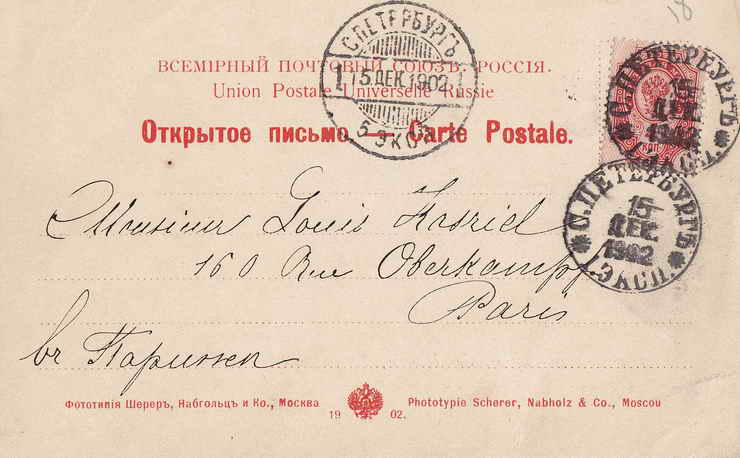 18
С.ПЕТЕРБУРГЪ
1 15 ДЕК.1902 1
5 ЭКСП
ВСЕМІРНЫЙ ПОЧТОВЫЙ СОЮЗЪ. РОССІЯ.
Union Postale Universelle Russie
Открытое письмо — Carte Postale.
С.ПЕТЕРБУРГЪ
15
ДЕК
1902
1 ЭКСП.
С.ПЕТЕРБУРГЪ
15
ДЕК
1902
1 ЭКСП.
Monsieur Louis Kasriel
160 Rue Oberkampf
Paris
въ Парижъ
Фототипія Шереръ, Набгольцъ и Ко., Москва
1902.
Phototypie Scherer, Nabholz & Co., Moscou